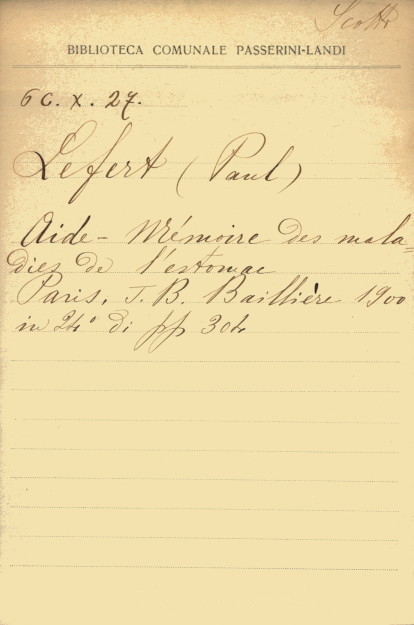 Scotti
BIBLIOTECA COMUNALE PASSERINI-LANDI
6 C. X. 27.
Lefert (Paul)
Aide-Mémoire des mala=
dies de l'estomac
Paris, J. B. Baillière 1900
in 24° di pp 304